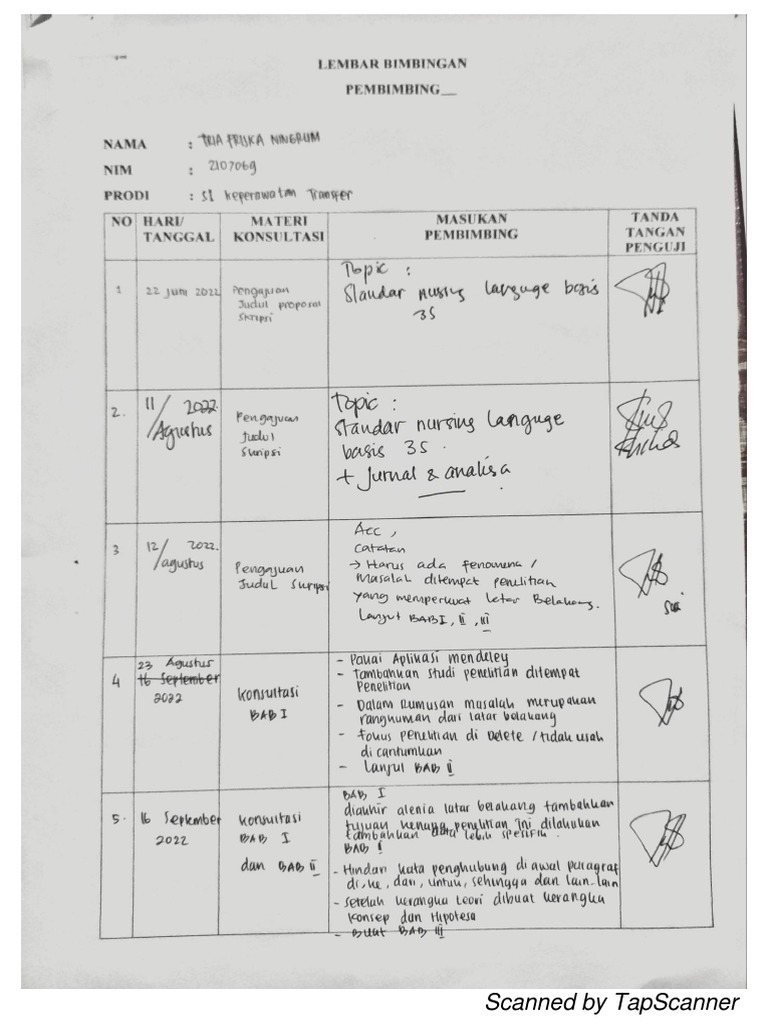 LEMBAR BIMBINGAN
PEMBIMBING__
NAMA : TRIA FRISKA NINGRUM
NIM : 2107069
PRODI : S1 Keperawatan Transfer
NO HARI/ TANGGAL MATERI KONSULTASI MASUKAN PEMBIMBING TANDA TANGAN PENGUJI
1 22 Juni 2022 Pengajuan
Judul proposal
Skripsi
Topic :
Standar nursing languge basis
3S
2. 11/ Agustus 2022
Pengajuan
Judul
Skripsi
Topic :
Standar nursing languge
basis 3S.
+ Jurnal & analisa
3 12/ agustus 2022.
Pengajuan
Judul Skripsi
Acc,
Catatan
→ Harus ada fenomena /
Masalah ditempat penelitian
yang memperkuat latar Belakang.
Lanjut BAB I, II, III
4 23 Agustus
16 September
2022
Konsultasi
BAB I
- Pakai Aplikasi mendeley
- Tambahkan studi penelitian ditempat
Penelitian
- Dalam Rumusan masalah merupakan
rangkuman dari latar belakang
- Fokus penelitian di Delete / tidak usah
di cantumkan
- Lanjut BAB II
5. 16 September
2022
Konsultasi
BAB I
dan BAB II
BAB I
diakhir alenia latar belakang tambahkan
tujuan kenapa penelitian ini dilakukan
tambahkan data lebih spesifik.
- Hindari kata penghubung di awal paragraf
di, ke, dari, untuk, sehingga dan lain-lain
- Setelah kerangka teori dibuat kerangka
konsep dan Hipotesa
- Buat BAB III
Scanned by TapScanner